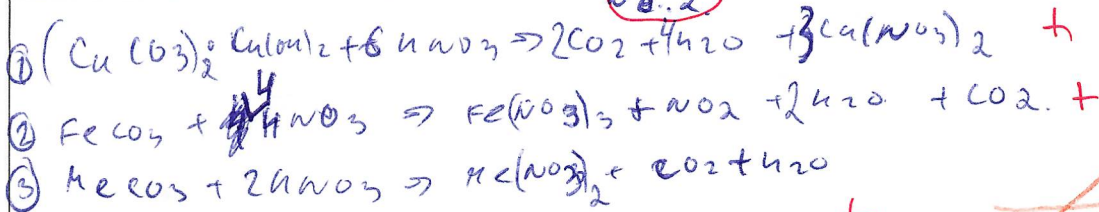 ① (CuCO3)2·Cu(OH)2 + 6HNO3 ⇒ 2CO2 + 4H2O + 3Cu(NO3)2 +
② FeCO3 + 4HNO3 ⇒ Fe(NO3)3 + NO2 + 2H2O + CO2. +
③ MeCO3 + 2HNO3 ⇒ Me(NO3)2 + CO2 + H2O